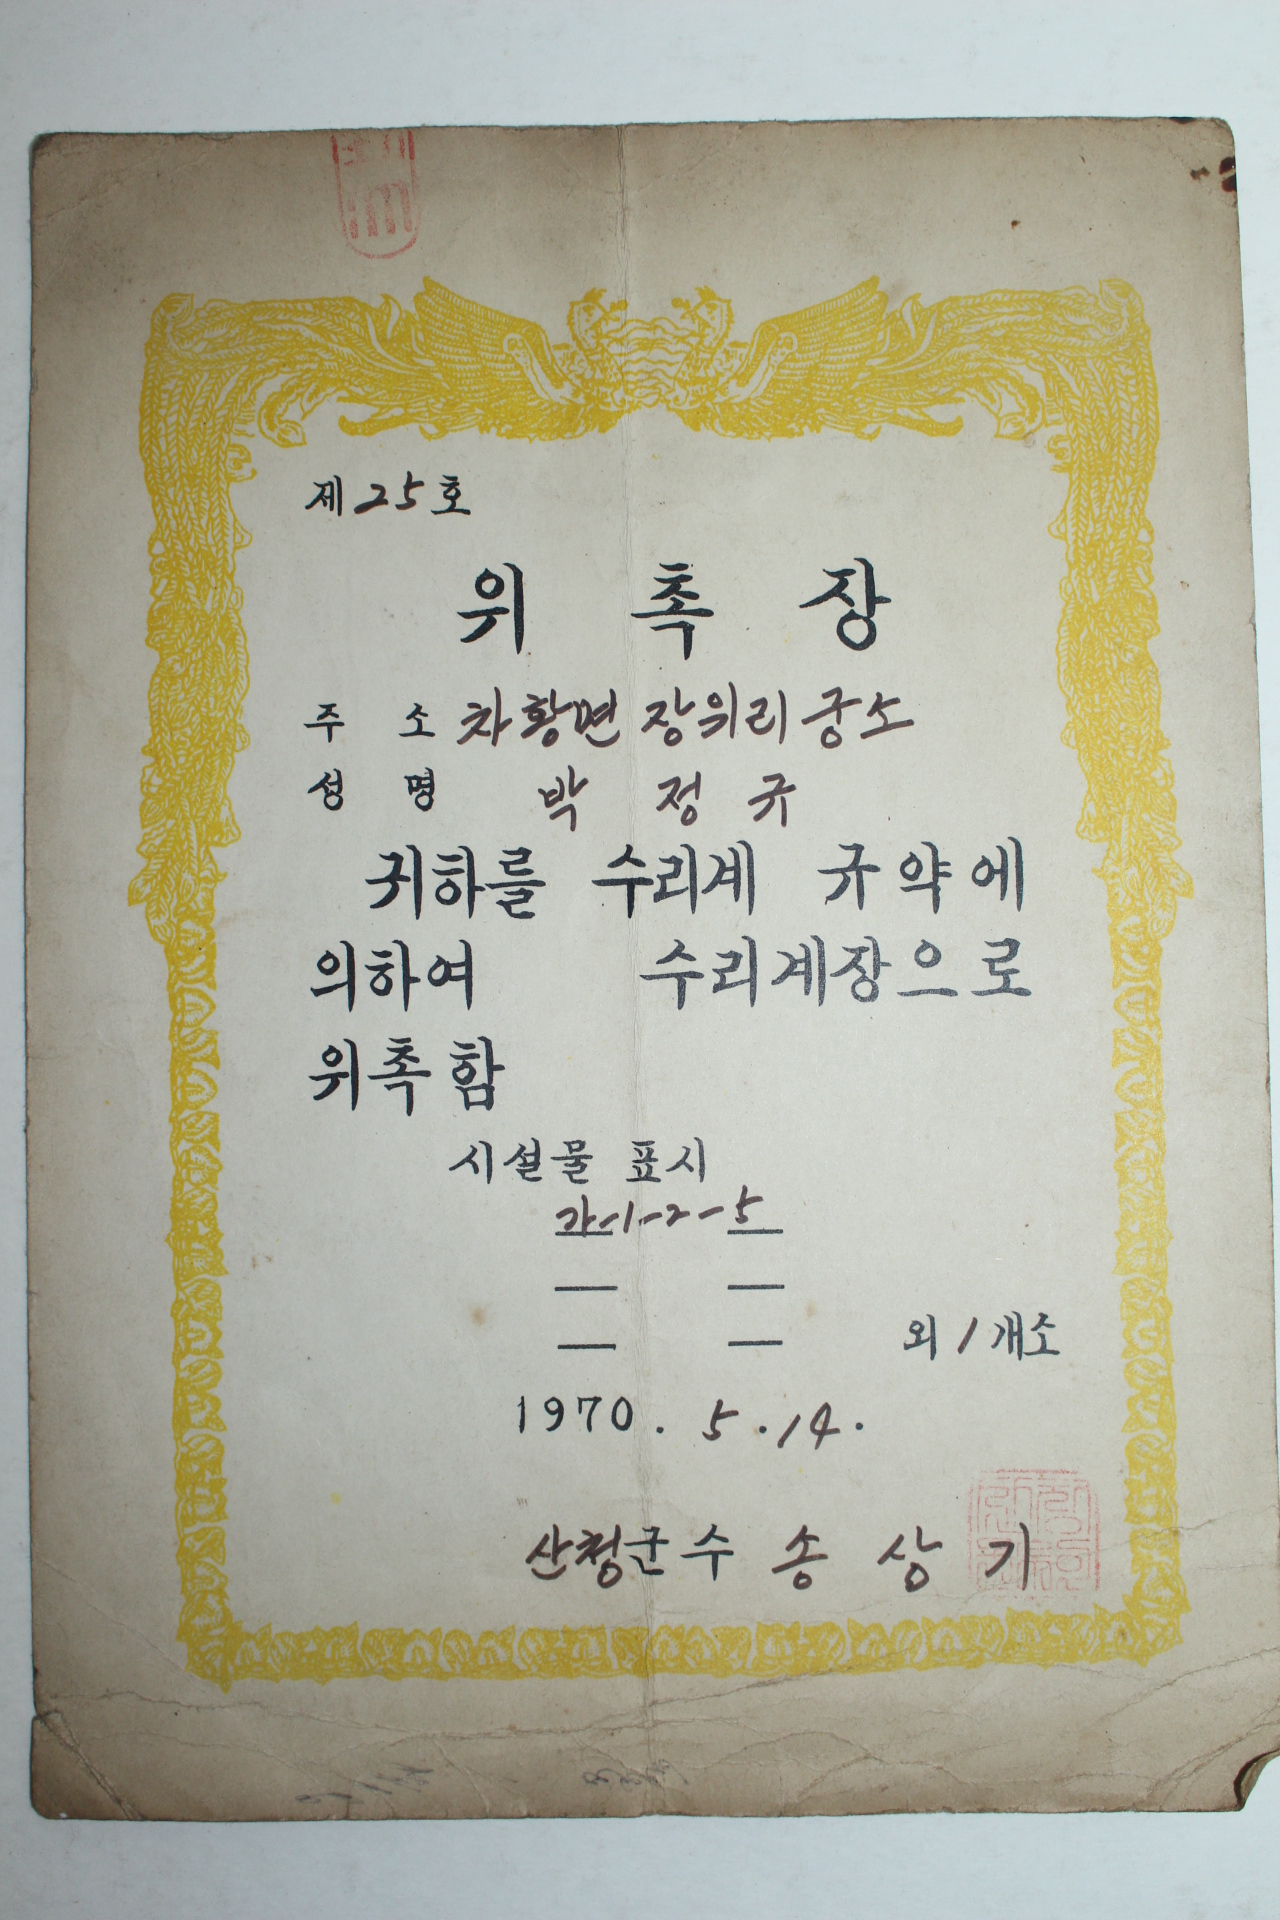 제 25 호
위 촉 장
주 소 차황면 장위리 궁소
성 명 박 정 규
귀하를 수리계 규약에
의하여 수리계장으로
위촉함
시설물 표시
가-1-2-5
— —
— —
외 1 개소
1970. 5. 14.
산청군수 송 상 기